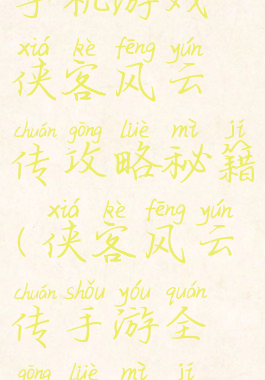 手机游戏
xiá kè fēng yún
侠客风云
chuán gōng lüè mì jí
传攻略秘籍
xiá kè fēng yún
(侠客风云
chuán shǒu yóu quán
传手游全
gōng lüè mì jí